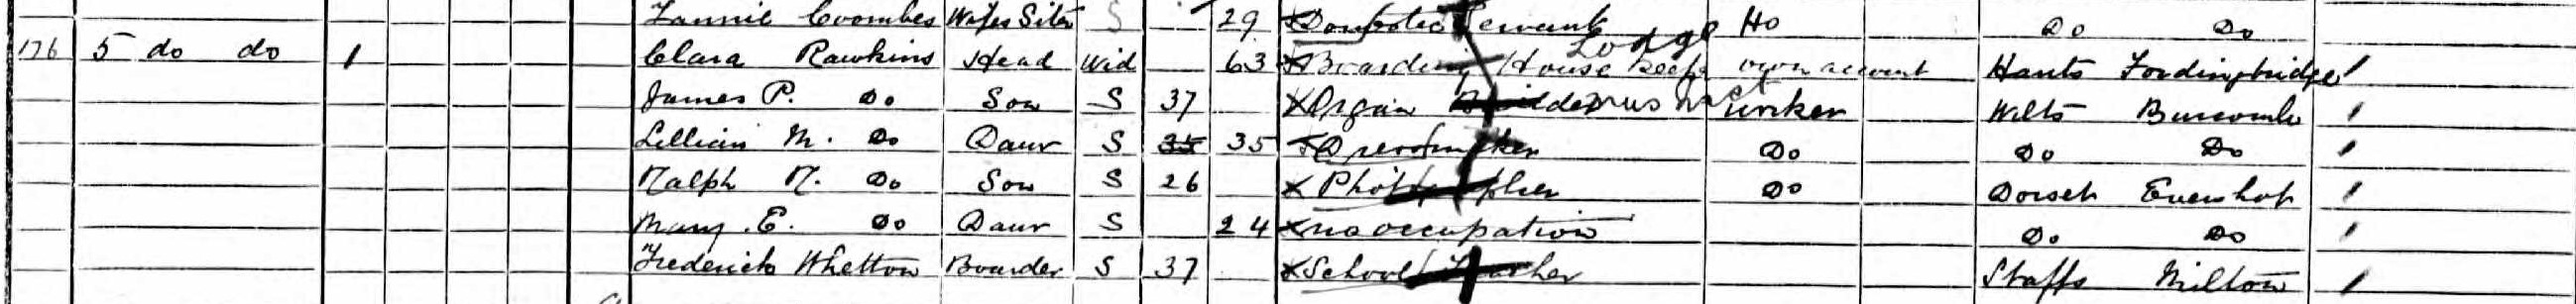 Fannie Coombes Wifes Sister S 29 Domestic Servant Ho Do Do
176 5 do do 1 Clara Rawkins Head Wid 63 Boarding House Keepr Lodge own account Hants Fordingbridge
James P. Do Son S 37 Organ Builder mus inst worker Wilts Burcombe
Lillian M. Do Daur S 35 35 Dressmaker Do Do Do
Ralph R. Do Son S 26 Photographer Do Dorset Evershot
Mary E. Do Daur S 24 no occupation Do Do
Frederick Whetton Boarder S 37 School Teacher Staffs Milton